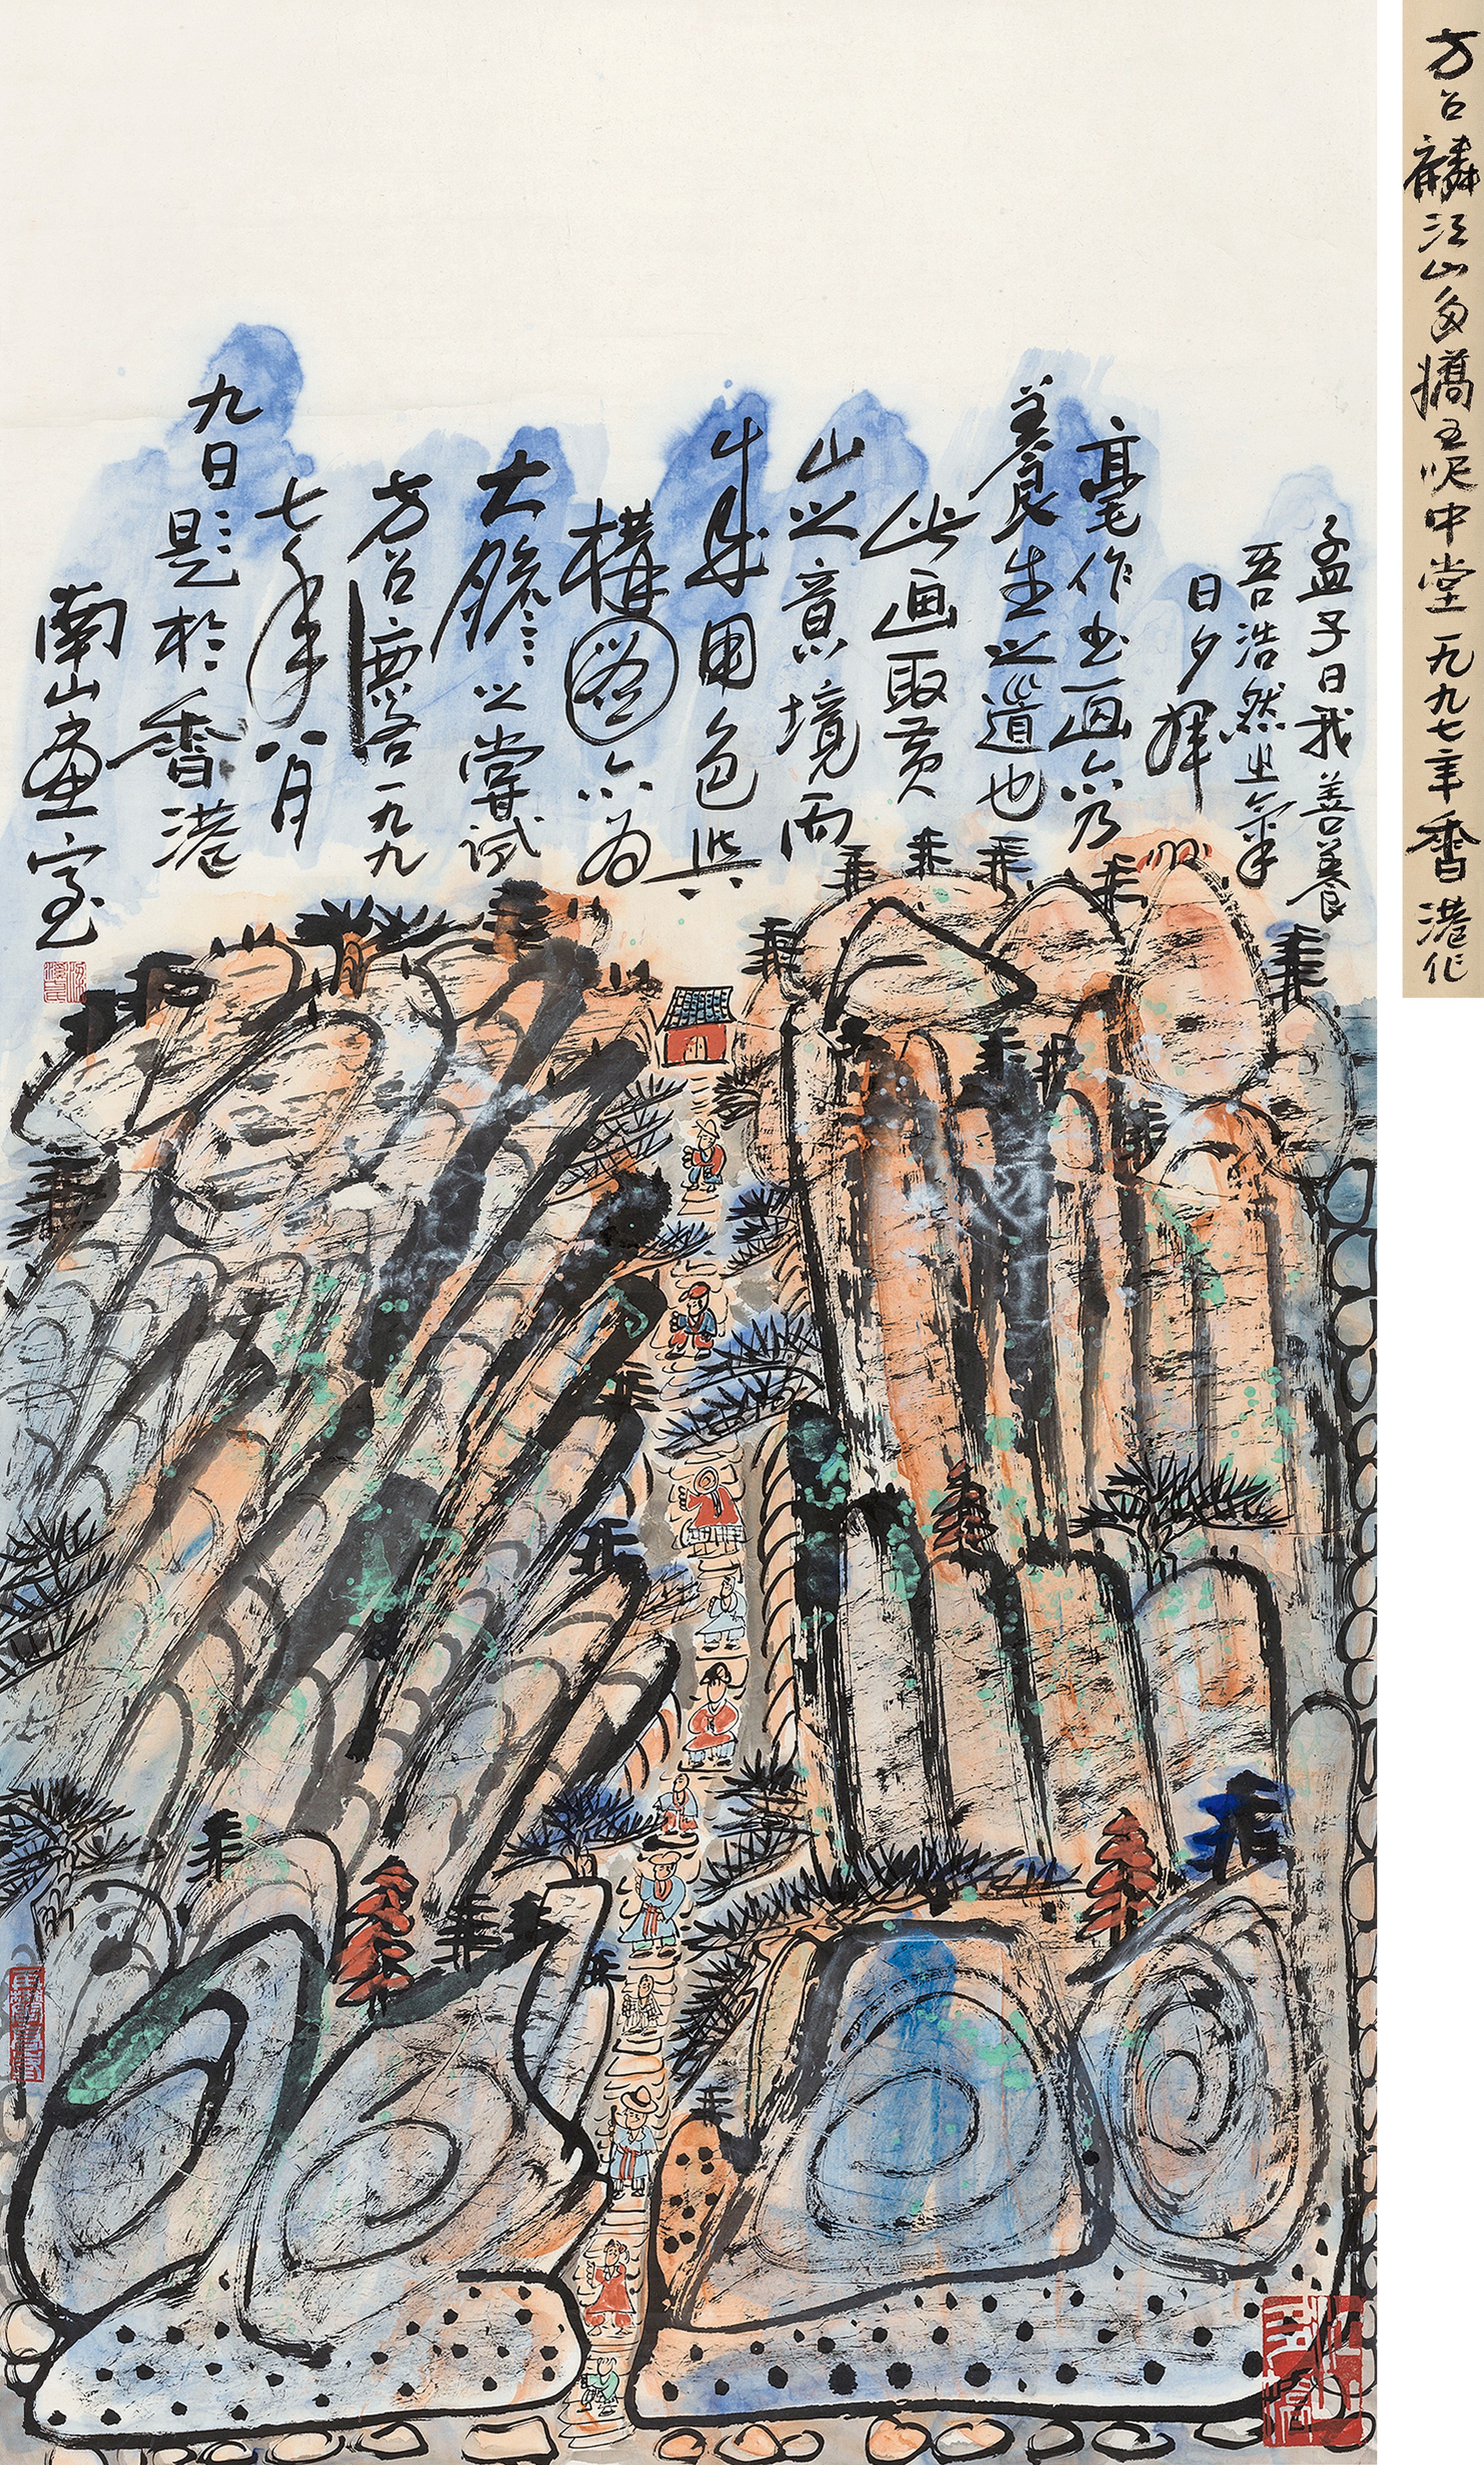 方召麐江山多嬌五呎中堂一九九七年香港作
孟子曰我善養
吾浩然之氣
日夕揮
毫作書画亦乃
養生之道也
此画取黄
山之意境而
成用色與
構圖亦為
大膽之嘗試
方召麐一九九
七年八月
九日題於香港
南山畫室
江山多嬌